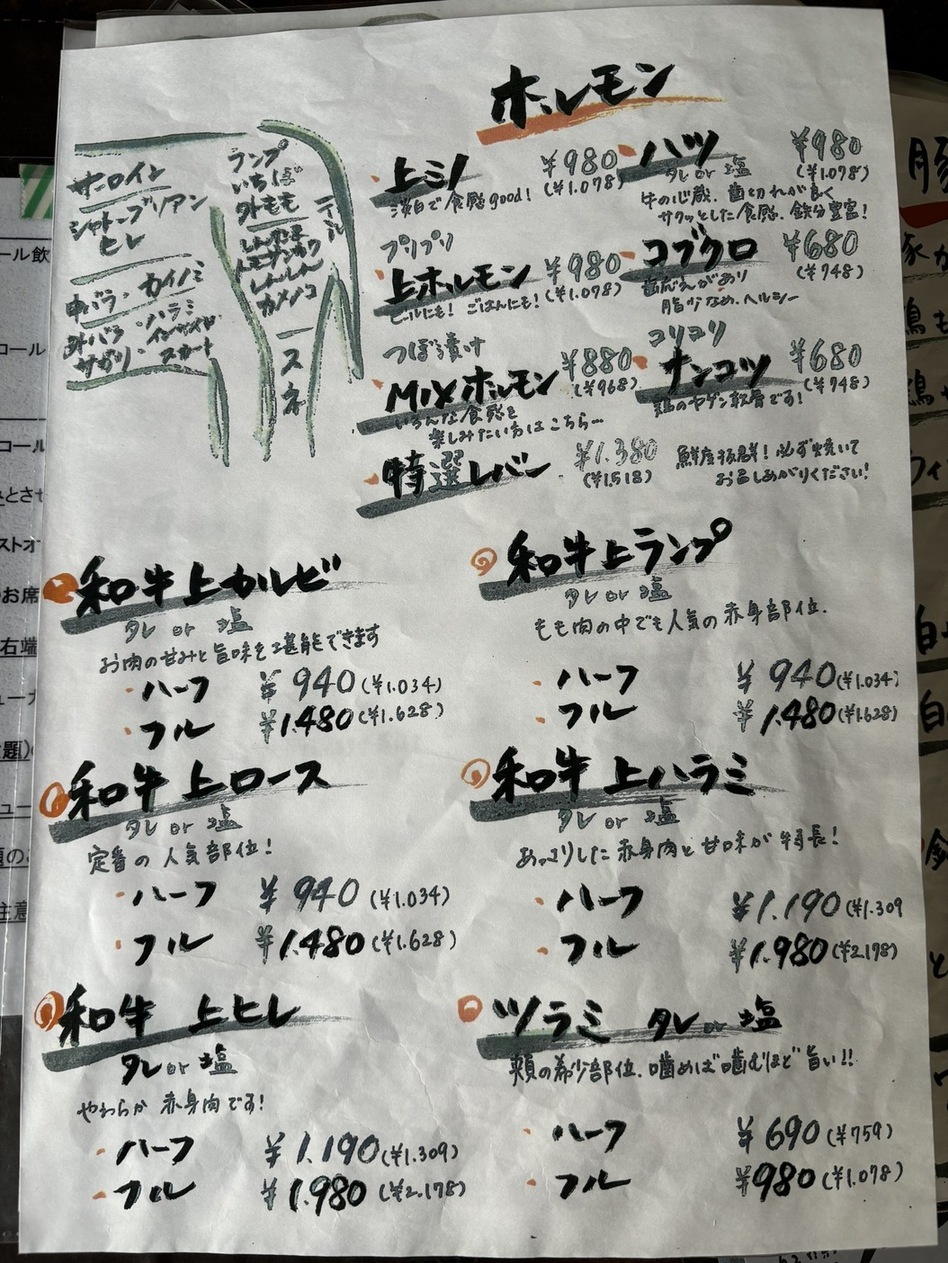 ホルモン
サーロイン
シャトーブリアン
ヒレ
中バラ・カイノミ
外バラ・ハラミ
インサイド
サガリ・スカート
ランプ
いちぼ
外モモ
しんたま
トモサンカク
しんしん
カメノコ
スネ
上ミノ ¥980
淡白で食感good! (¥1.078)
ハツ ¥980
タレ or 塩 (¥1.078)
牛の心臓。歯切れが良く
サクッとした食感。鉄分豊富!
プリプリ
上ホルモン ¥980
ビールにも! ごはんにも! (¥1.078)
コブクロ ¥680
歯ごたえがあり (¥748)
脂少なめ、ヘルシー
つぼ漬け
MIXホルモン ¥880
(¥968)
いろんな食感を
楽しみたい方はこちら…
コリコリ
ナンコツ ¥680
鶏のヤゲン軟骨です! (¥748)
特選レバー ¥1.380
(¥1.518)
鮮度抜群! 必ず焼いて
お召しあがりください!
和牛上カルビ
タレ or 塩
お肉の甘みと旨味を堪能できます
・ハーフ ¥940(¥1.034)
・フル ¥1.480(¥1.628)
和牛上ランプ
タレ or 塩
もも肉の中でも人気の赤身部位.
・ハーフ ¥940(¥1.034)
・フル ¥1.480(¥1.628)
和牛上ロース
タレ or 塩
定番の人気部位!
・ハーフ ¥940(¥1.034)
・フル ¥1.480(¥1.628)
和牛上ハラミ
タレ or 塩
あっさりした赤身肉と甘味が特長!
・ハーフ ¥1.190(¥1.309
・フル ¥1.980(¥2.178)
和牛 上ヒレ
タレ or 塩
やわらか赤身肉です!
・ハーフ ¥1.190(¥1.309)
・フル ¥1.980(¥2.178)
ツラミ タレ or 塩
頬の希少部位. 噛めば噛むほど旨い!!
・ハーフ ¥690(¥759)
・フル ¥980(¥1.078)